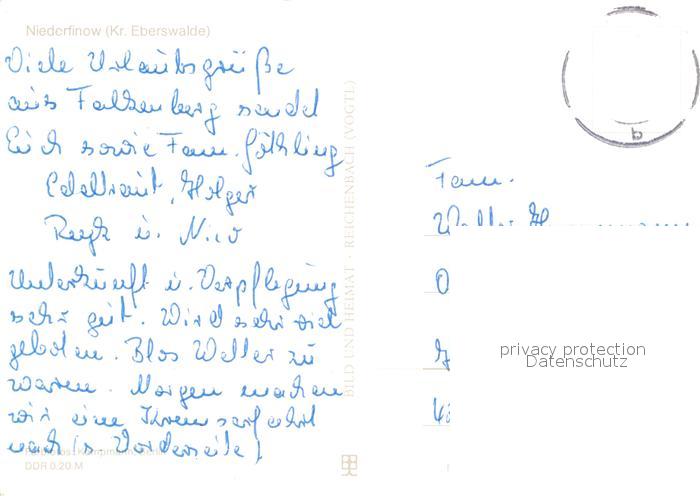 Niederfinow (Kr. Eberswalde)
Viele Urlaubsgrüße
aus Falkenberg sendet
Euch sowie Fam. Göthling
Edeltraut, Holger
u. Nico
Unterkunft u. Verpflegung
sehr gut. Wird sehr viel
geboten. Blos Wetter zu
warm. Morgen machen
wir eine Kremserfahrt
nach (s. Vorderseite)
DDR 0,20 M
BILD UND HEIMAT · REICHENBACH (VOGTL)
b
Fam.
privacy protection
Datenschutz